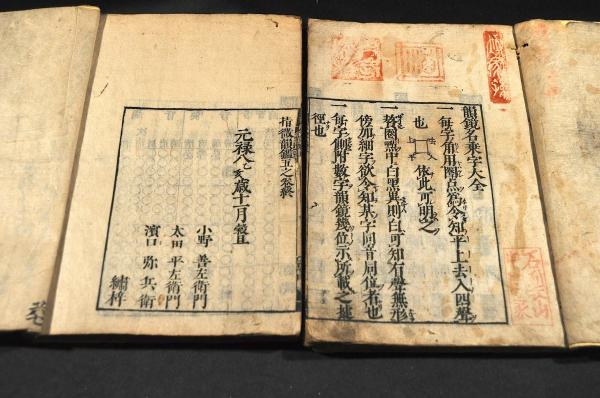 韻鏡名乗字大全
一毎字角用圏点為令知平上去入四聲
也 上去平入 依此可明之
一教圏點中白黒異則白可知有聲無形
傍加細字欲令知某字同音同位有也
一毎字側附数字韻鏡幾位示所載之據
徑也
指微韻鑑五之巻終
元禄八乙亥歳十一月穀旦
小野善左衛門
太田平左衛門
濱口弥兵衛
繡梓